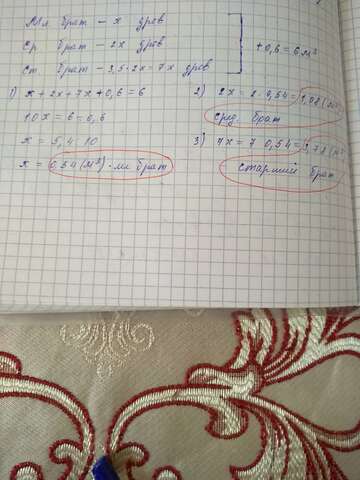 Мл брат - x дров
ср брат - 2x дров
ст брат - 3,5 · 2x = 7x дров
+ 0,6 = 6 м³
1) x + 2x + 7x + 0,6 = 6
10x = 6 - 0,6
x = 5,4 : 10
x = 0,54 (м³) - мл брат
2) 2x = 2 · 0,54 = 1,08 (м³
сред. брат
3) 7x = 7 · 0,54 = 3,78 (м³
старший брат